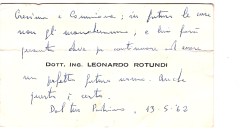 Cresima e Comunione; in futuro le cose
non gli mancheranno, e
quanto deve per continuare ad essere
DOTT. ING. LEONARDO ROTUNDI
un perfetto futuro uomo. Anche
questo è certo.
Dal tuo 13-5-62